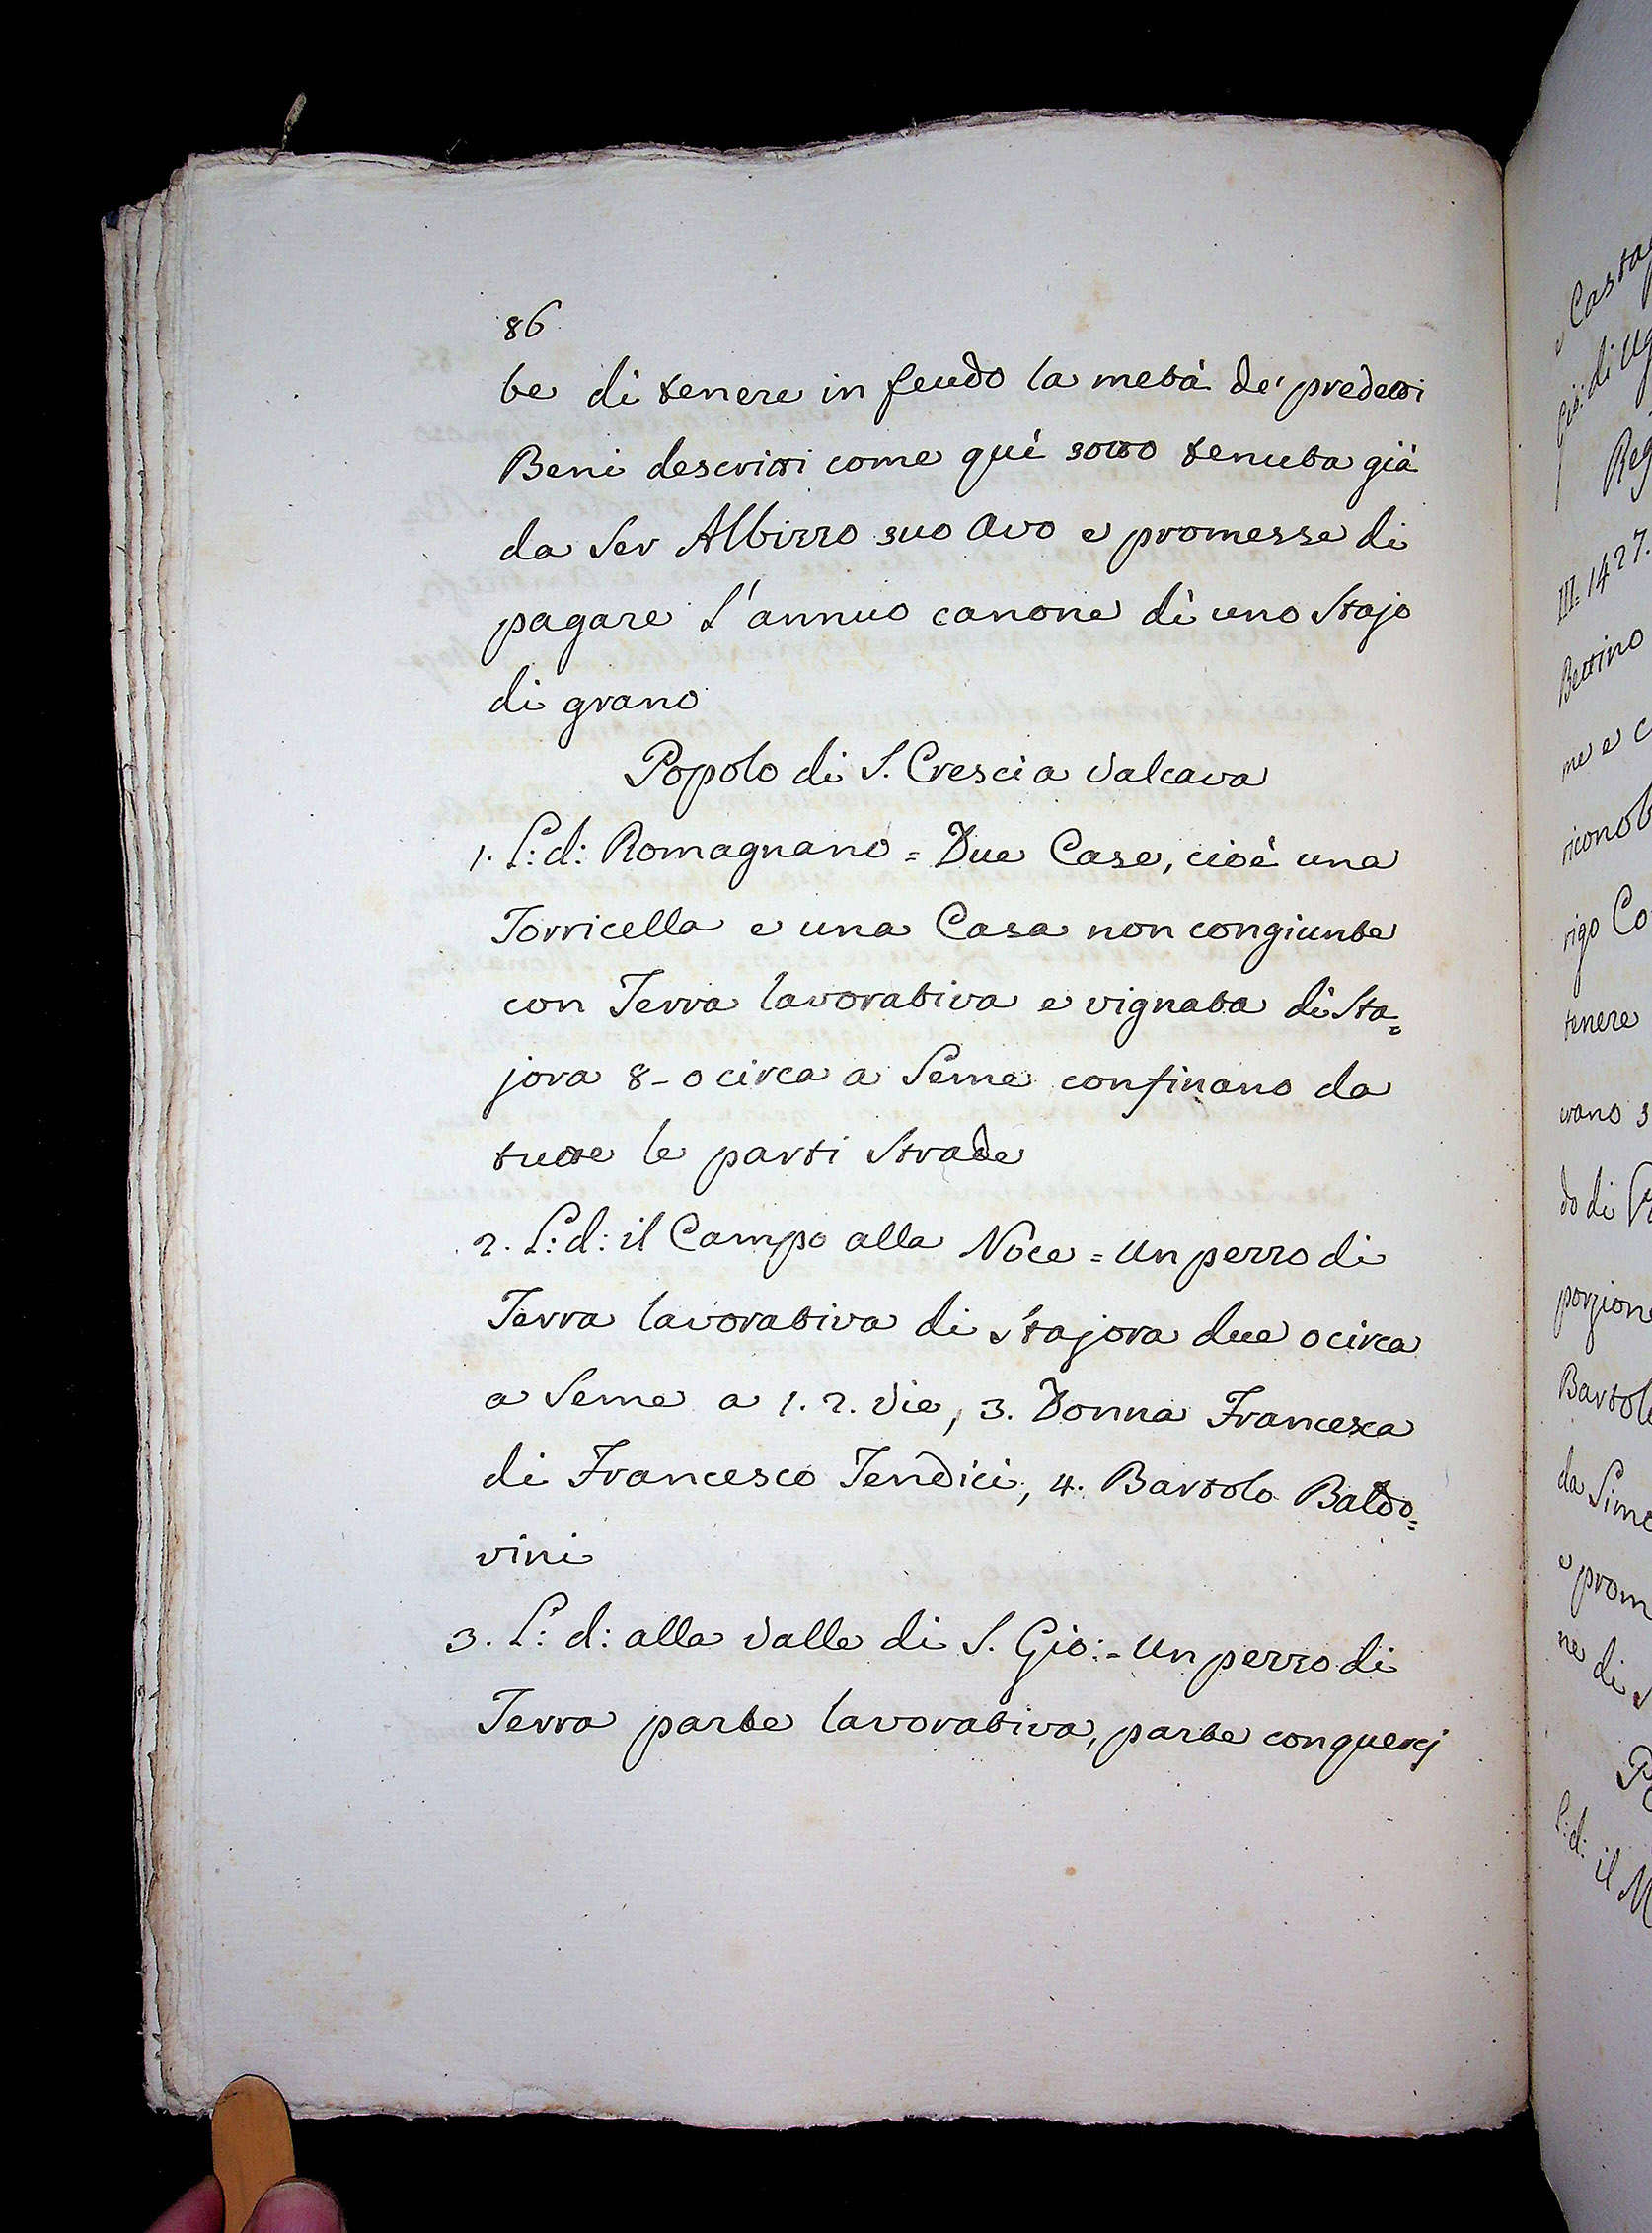 86
be di tenere in feudo la metà de' predetti
Beni descritti come quì sotto tenuta già
da Ser Albizzo suo Avo e promesse di
pagare l'annuo canone di uno Stajo
di grano
Popolo di S. Cresci a Valcava
1. L: d: Romagnano = Due Case, cioè una
Torricella e una Casa non congiunte
con Terra lavorativa e vignata di Sta=
jora 8 - o circa a Seme confinano da
tutte le parti Strade
2. L: d: il Campo alla Noce = Un pezzo di
Terra lavorativa di Stajora due o circa
a Seme a 1. 2. Vie, 3. Donna Francesca
di Francesco Tendici, 4. Bartolo Baldo=
vini
3. L: d: alla Valle di S. Gio: = Un pezzo di
Terra parte lavorativa, parte con quercj
Gio: di Ug
Reg
III: 1427.
Bettino
me e c
riconob
rigo Co
tenere
vano s
do di
porzion
Bartol
da Sim
e prom
ne di
L: d: il M